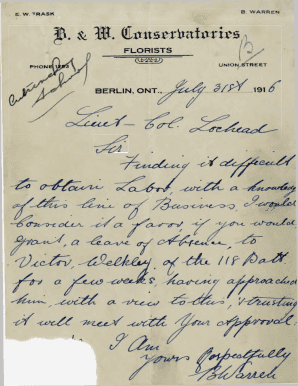 E. W. TRASK
B. WARREN
B. & W. Conservatories
FLORISTS
PHONE
UNION STREET
BERLIN, ONT., July 31st 1916
Lieut - Col. Lochead
Sir
Finding it difficult
to obtain Labor, with a knowledge
of this line of Business I would
Consider it a favor, if you would
grant, a leave of Absence, to
Victor, Weltley, of the 118 Batt
for a few weeks, having approached
him, with a view to this, & trusting
it will meet with Your Approval
I Am
Yours Respectfully
B Warren